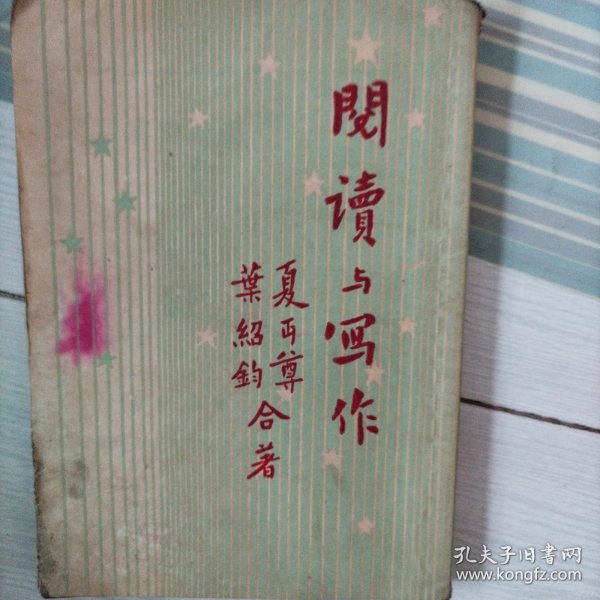 閱讀与写作
夏丏尊
葉紹鈞
合著
孔夫子旧书网
www.kongfz.com